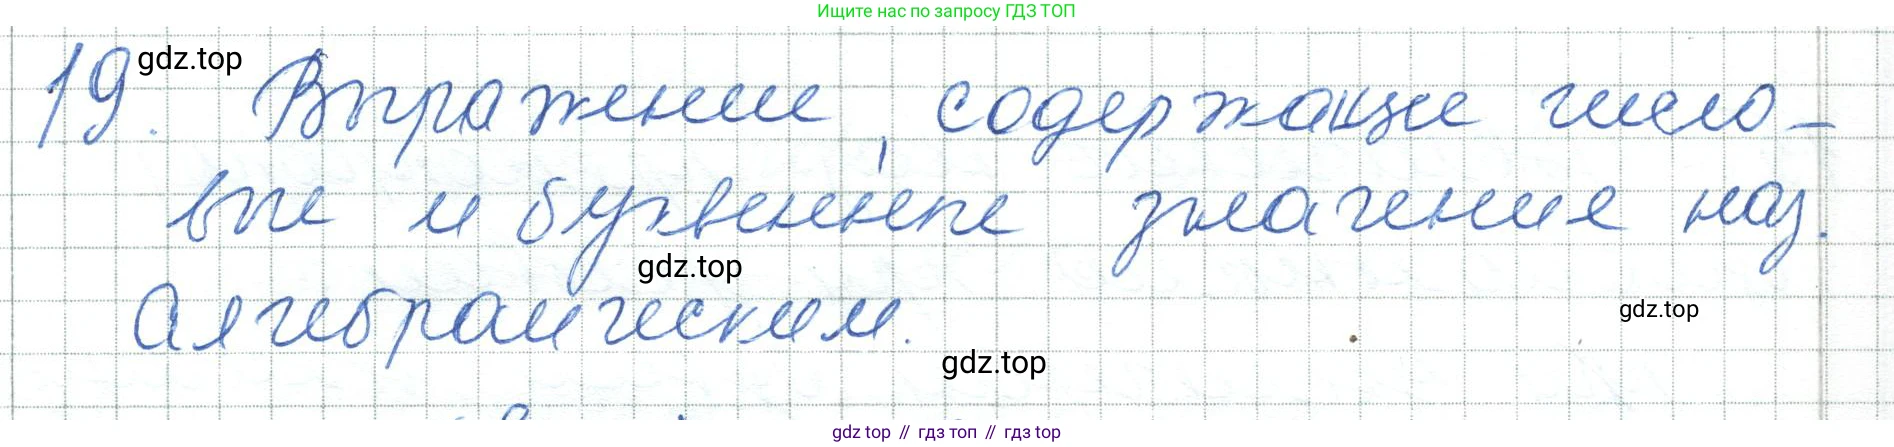 Ищите нас по запросу ГДЗ ТОП
19. gdz.top Выражение, содержащие число-
вые и буквенные значения наз.
gdz.top
алгебраическим.
gdz.top
gdz.top
gdz top // гдз топ // гдз top